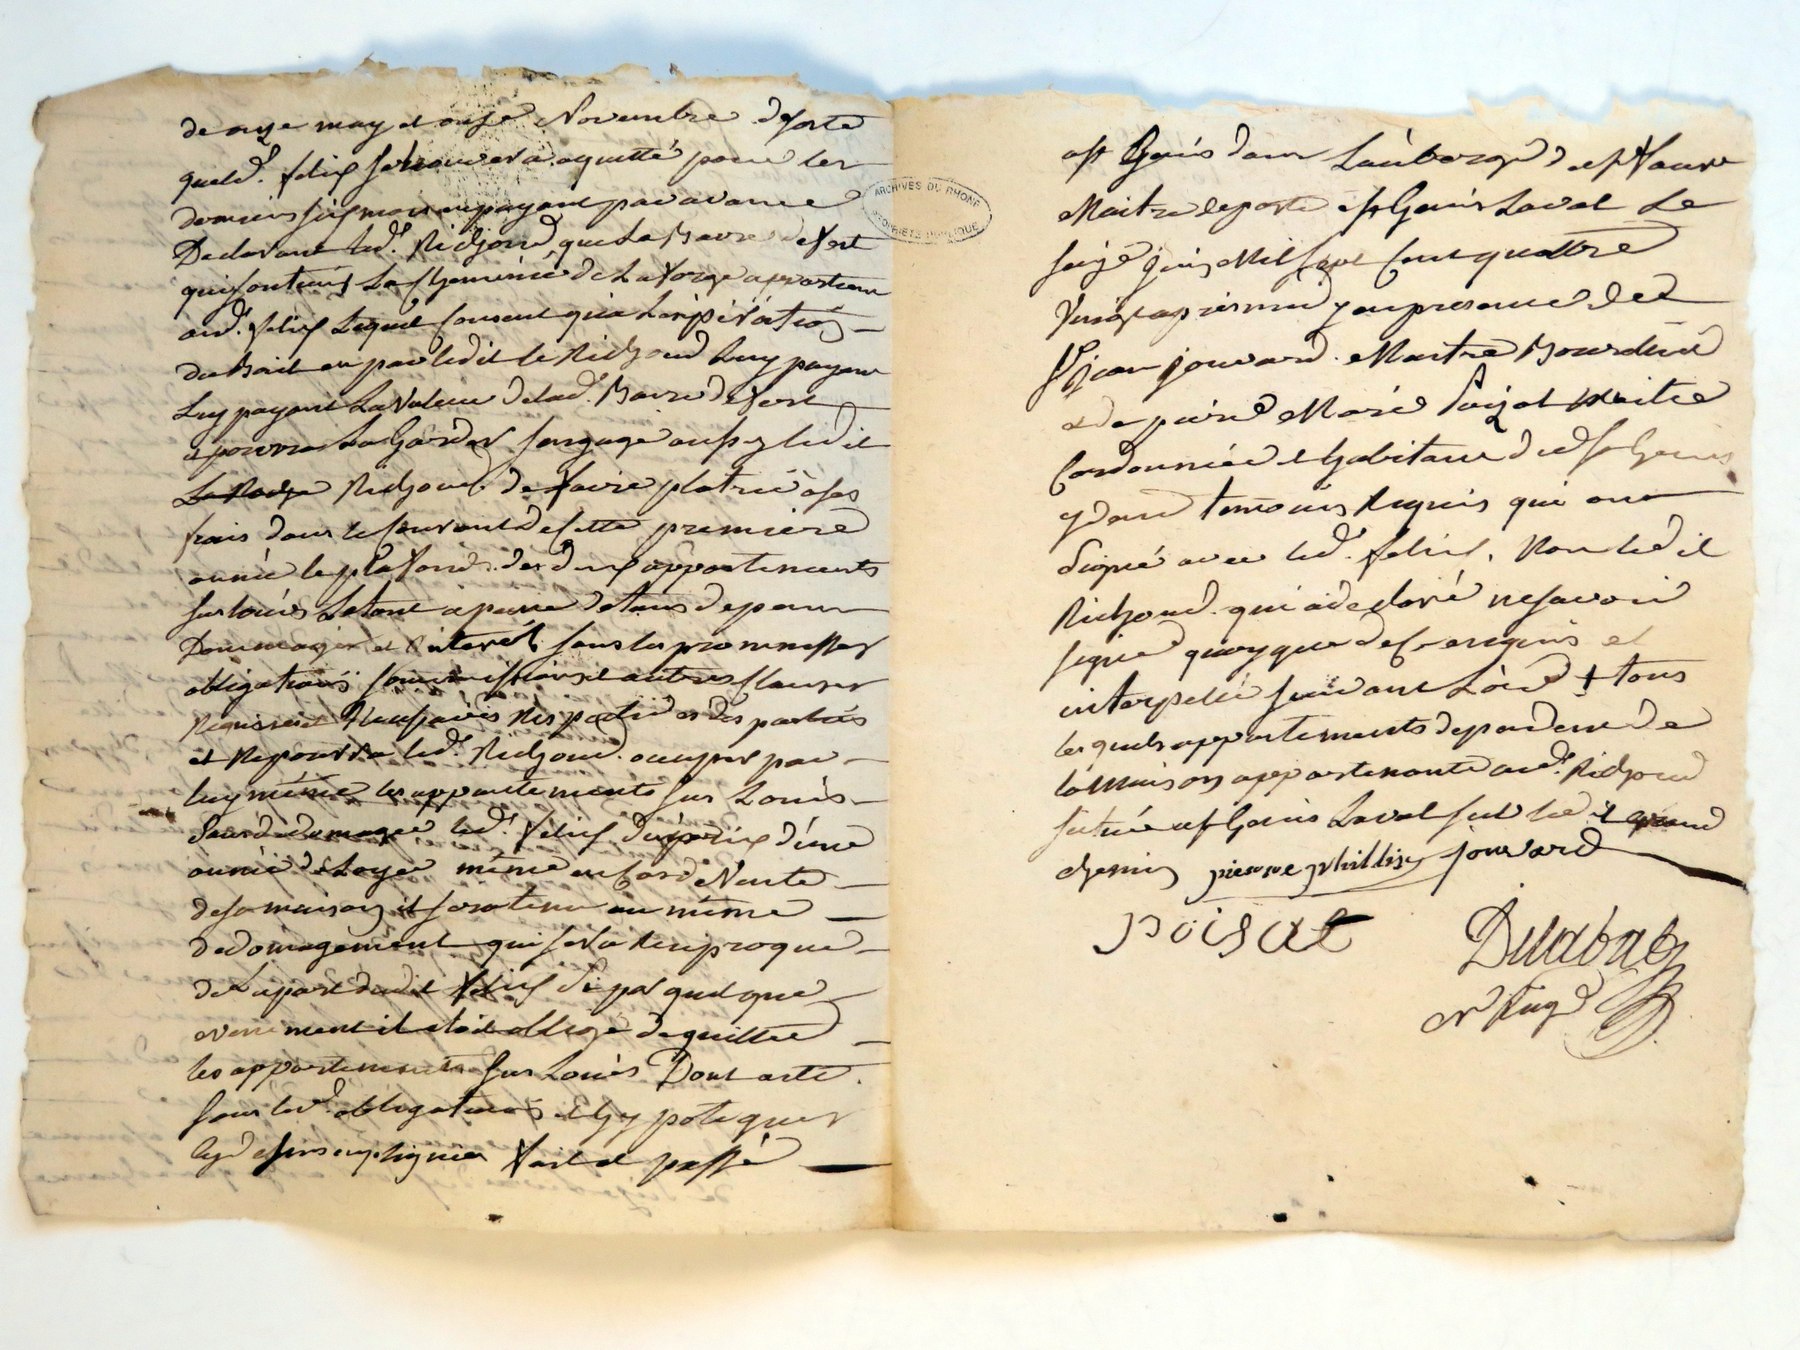 de onze may et onze Novembre desorte
queled. felix setrouvera aquitté pour les
derniers six mois en payant par avance
Declarant led. Richoud que La Barre de fert
qui soutient La Cheminée de La forge apartient
aud. felix Lequel consent qu'a L'expiration
du Bail ou par ledit le Richoud Luy payant
Luy payant La valeur de lad. Barre de fert
il pourra La Garder sengage aussy ledit
Richoud de faire platrir a ses
frais dans le courant de cette premiere
année le plafond des deux appartements
sus Loués Letout a peine de tous depens
Dommages et interét sous les prommesses
obligations soumissions et autres clauses
Requises Respectives des parties
et Ne pourra led. Richoud occuper par
luy même les appartements sus Loués
sans dedomager led. felix du prix d'une
année de Loyer même en cas de Vente
de sa maison il sera tenu au même
dedomagement qui sera Reciproque
de La part dudit felix si par quelque
evenement il etoit obligé de quitter
les appartements sus Loués Dont acte
sous led. obligations et hypoteques
fait et passé
ARCHIVES DU RHONE
PROPRIETE PUBLIQUE
a St Genis dans L'auberge de faure
Maitre de poste a St Genis Laval Le
seize Juin Mil sept Cent quattre
Vingt apres midy en presence de
Sr Jean Jouvard Maitre Bourelier
et de pierre Marie Poizat maitre
Cordonnier et habitant dud St Genis
temoins Requis qui ont
signé avec led. felix, Non ledit
Richoud qui a declaré ne savoir
signer quoyque de ce enquis et
interpellé suivant L'ord + tous
lesquels appartements dependent de
la Maison appartenante aud. Richoud
située a St Genis Laval sur led grand
chemin pierre phillix jouvard
poisat Delabat